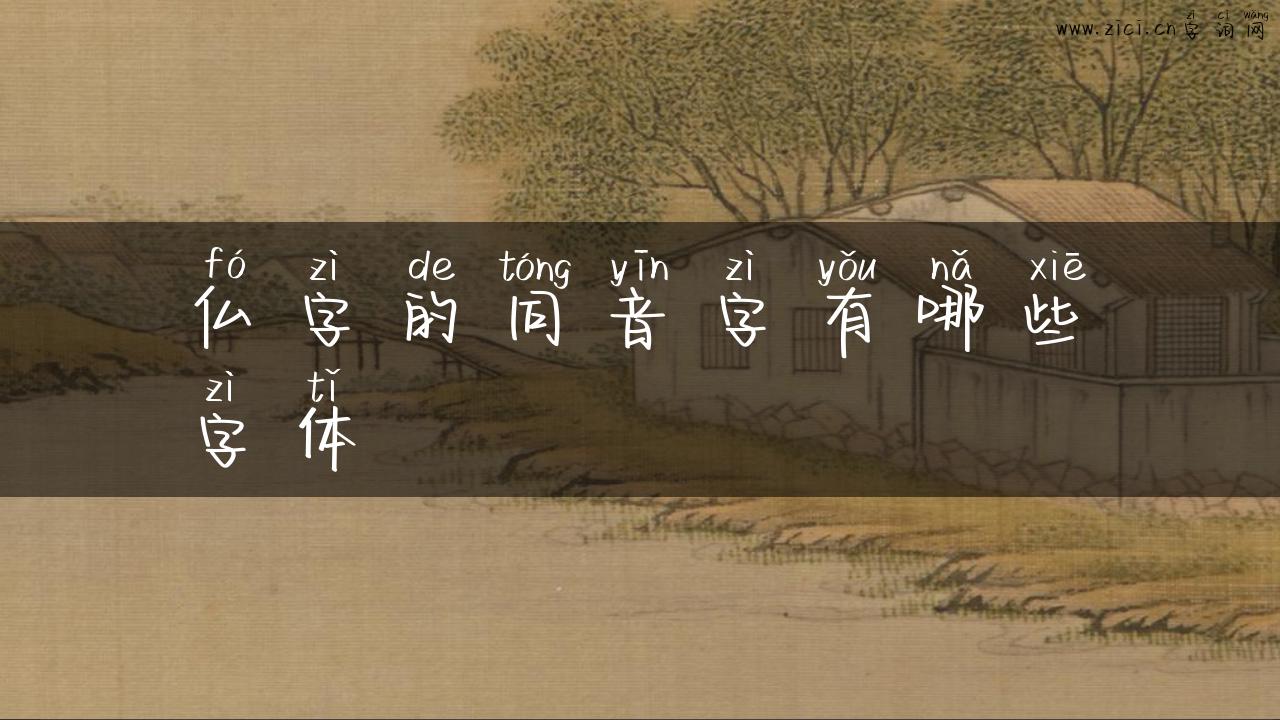 zì cí wǎng
www.zici.cn字词网
fó zì de tóng yīn zì yǒu nǎ xiē
仏字的同音字有哪些
zì tǐ
字体